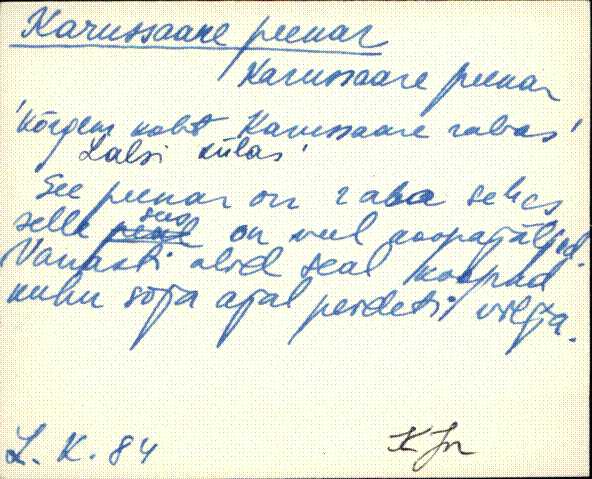 Karussaare peenar
Karussaare peenar
'kõrgem koht Karussaare rabas'
Lalsi külas'
See peenar on raba sehes
selle sees on veel koopajäljed.
Vanasti olid seal koopad
kuhu sõja ajal peideti vilja.
L. K. 84